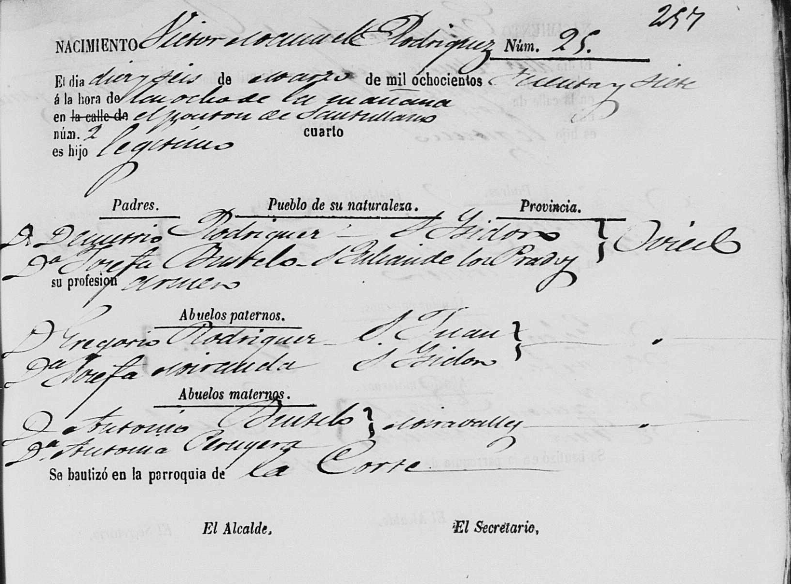 257
NACIMIENTO Victor Manuel Rodriguez Núm. 25.
El dia diez y seis de Marzo de mil ochocientos treinta y siete
á la hora de las ocho de la mañana
en la calle de el porton de Santullano
núm. 2 cuarto
es hijo legitimo
Padres. Pueblo de su naturaleza. Provincia.
Dn. Demetrio Rodriguez S. Isidoro } Oviedo
Da. Josefa Bustelo S. Julian de los Prados
su profesion armero
Abuelos paternos.
D. Gregorio Rodriguez S. Juan }
Da. Josefa Miranda S. Isidoro
Abuelos maternos.
D. Antonio Bustelo } Miravalles
Da. Antonia Peruyera
Se bautizó en la parroquia de la Corte
El Alcalde, El Secretario,